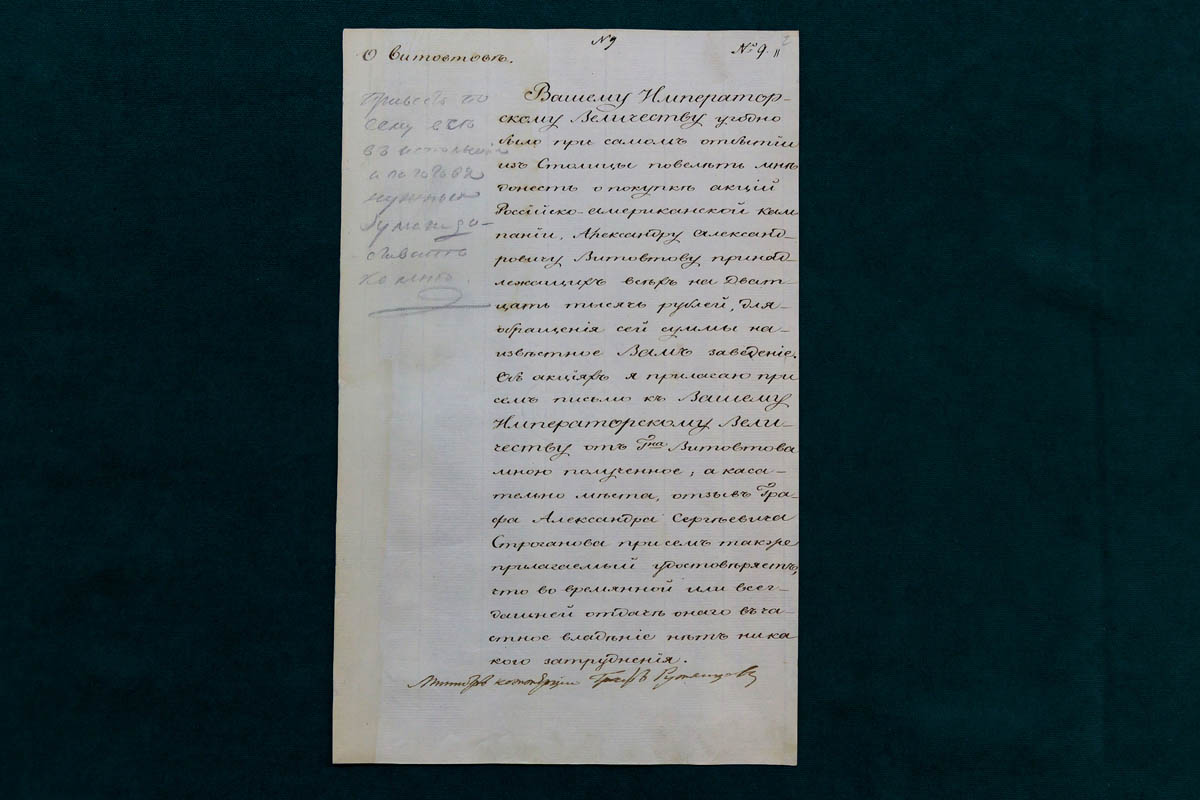 № 9
О Витовтовѣ.
№ 9.
Привесть по
сему его
въ исполненіе
а по
нужныя
бумаги до-
ставить
ко мнѣ.
Вашему Император-
скому Величеству угодно
было при самомъ отбытіи
изъ Столицы повелѣть мнѣ
донесть о покупкѣ акцій
Россійско-американской кам
паніи, Александру Александ-
ровичу Витовтову принад-
лежащихъ всѣхъ на Дват-
цать тысячь рублей, для
обращенія сей суммы на
извѣстное Вамъ заведеніе.
Объ акціяхъ я прилагаю при
семъ письмо къ Вашему
Императорскому Вели-
честву отъ Гна Витовтова
мною полученное; а каса-
тельно мѣста, отзывъ Гра-
фа Александра Сергѣевича
Строганова присемъ также
прилагаемый удостовѣряетъ,
что во времянной или всег-
дашней отдачѣ онаго въ ча
стное владѣніе нѣтъ ника
кого затрудненія.
Министръ коммерціи Графъ Румянцовъ